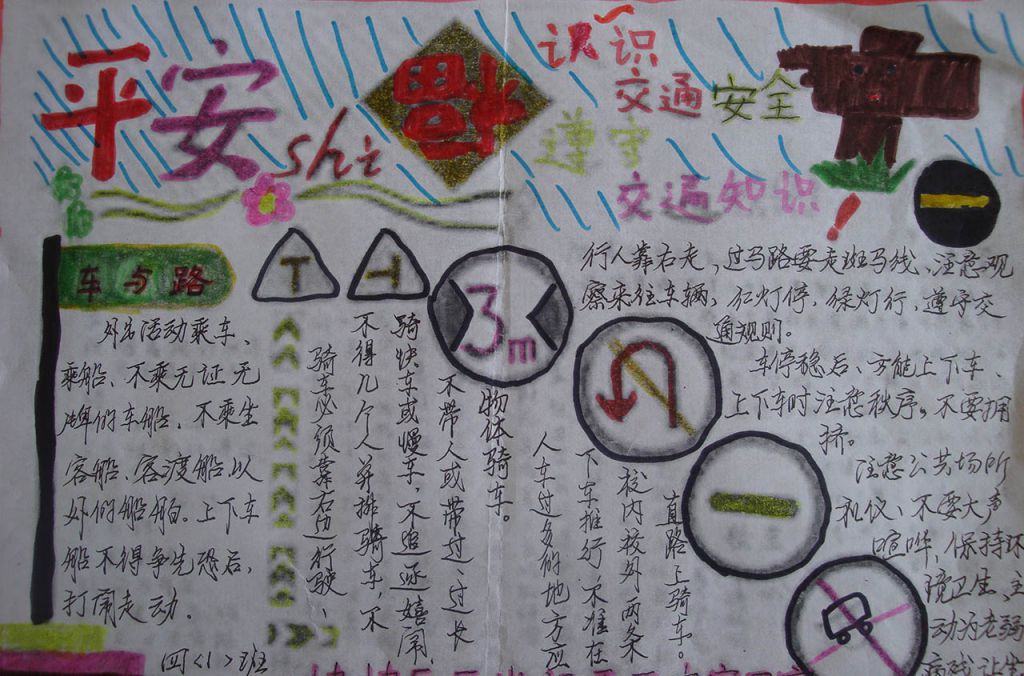 平安shi福
认识
交通安全
遵守
交通知识!
车与路
外出活动乘车、
乘船、不乘无证无
牌的车船,不乘生
客船、客渡船以
外的船舶。上下车
船不得争先恐后,
打闹走动。
四〈1〉班
骑车必须靠右边行驶、
不得几个人并排骑车,不
骑快车或慢车,不追逐嬉闹,
不带人或带过过长
物体骑车。
人车过多的地方应
下车推行、不准在
校内校外两条
直路上骑车。
3m
行人靠右走,过马路要走斑马线,注意观
察来往车辆、红灯停,绿灯行,遵守交
通规则。
车停稳后、方能上下车、
上下车时注意秩序。不要拥
挤。
注意公共场所
礼仪、不要大声
喧哗,保持环
境卫生、主
动为老弱
病残让